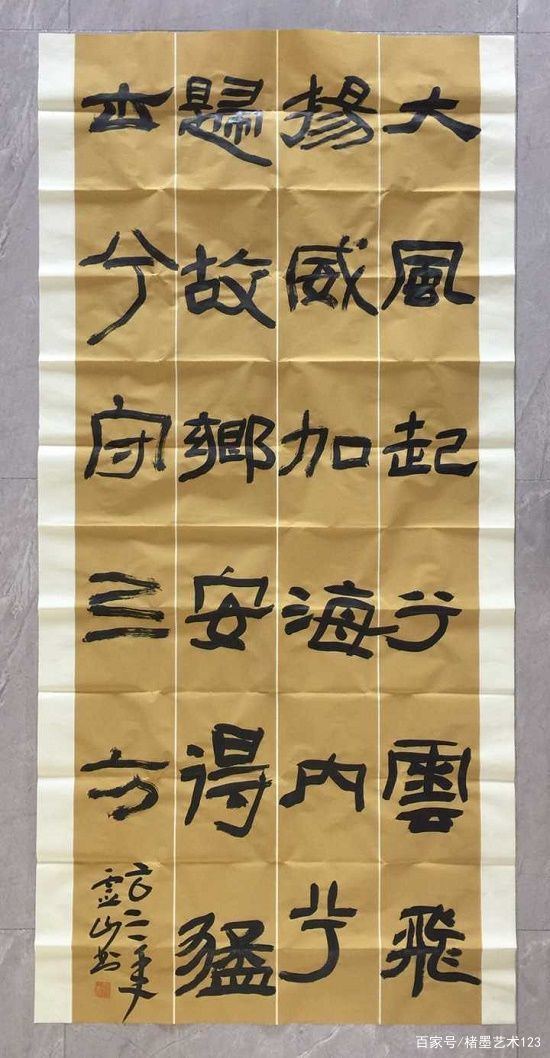 大風起兮雲飛
揚威加海内兮
歸故鄉安得猛
士兮守三方
年
靈山书
百家号/楮墨艺术123